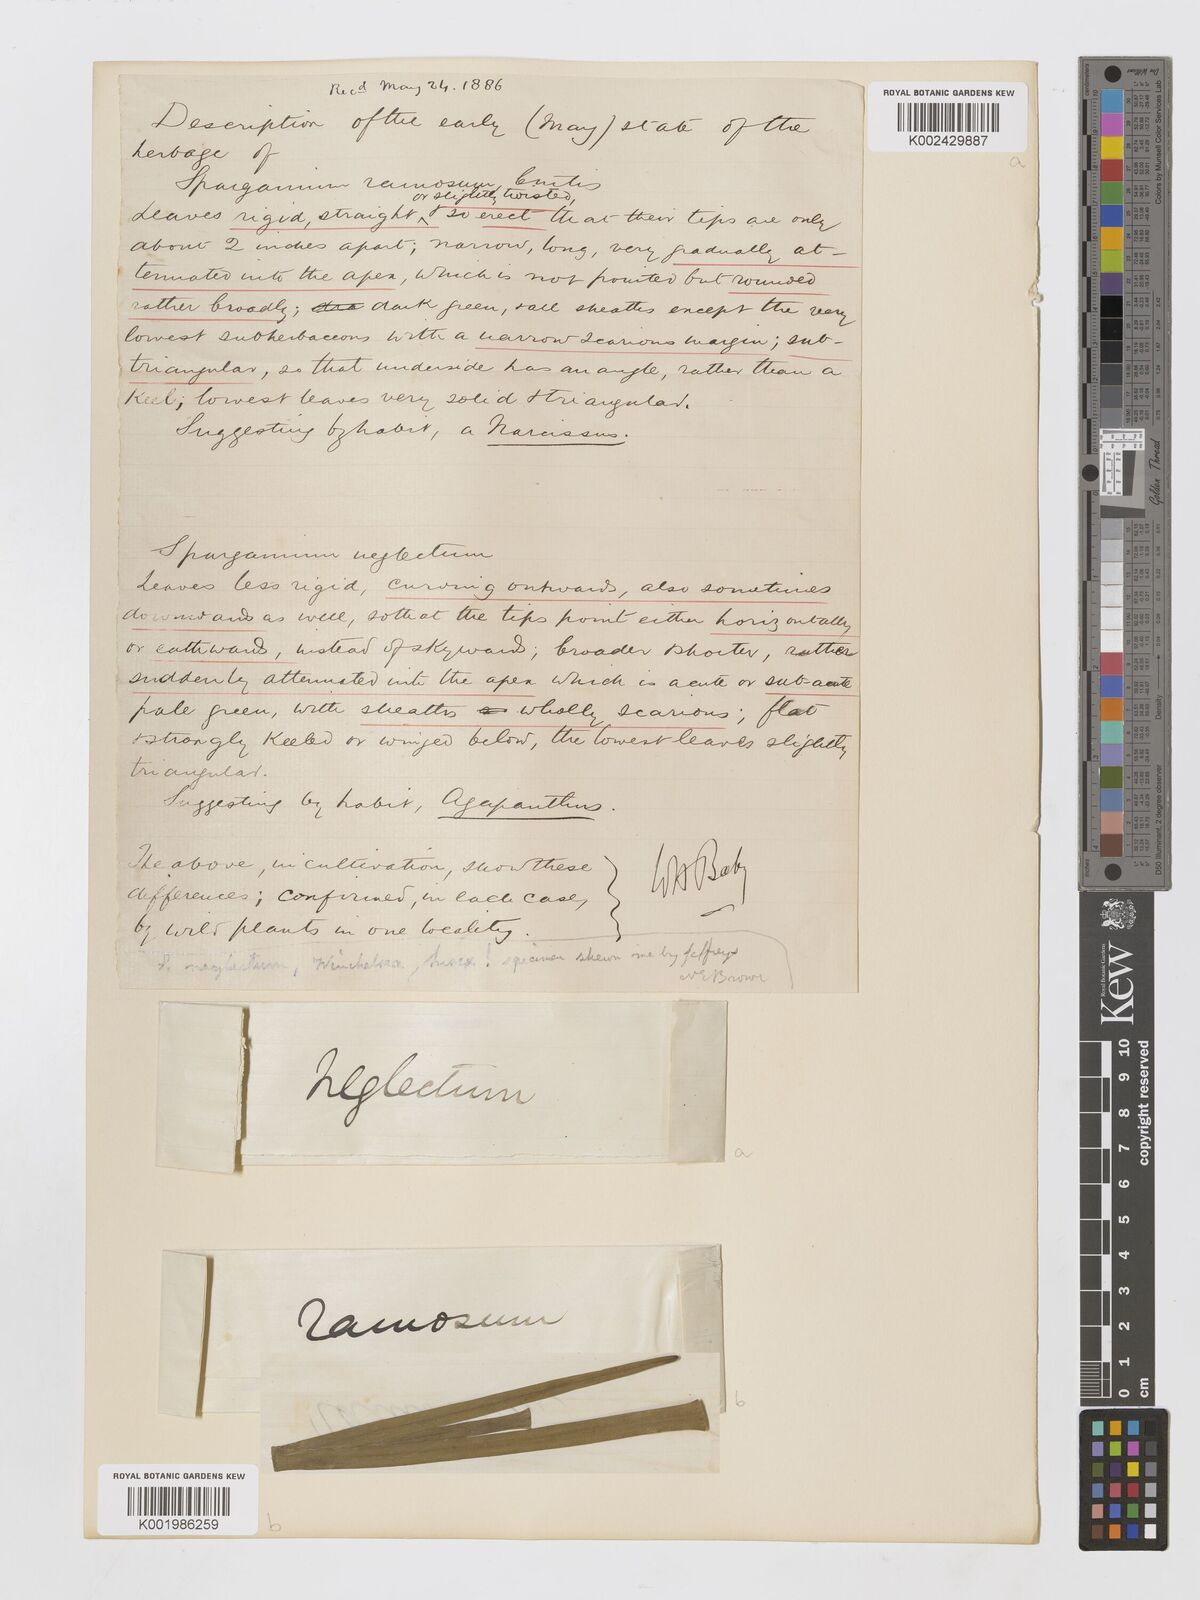 Recd May 24. 1886
Description of the early (May) state of the
herbage of
Sparganium ramosum, Curtis
or slightly twisted,
Leaves rigid, straight & so erect that their tips are only
about 2 inches apart; narrow, long, very gradually at-
tenuated into the apex, which is not pointed but rounded
rather broadly; dark green, & all sheaths except the very
lowest subherbaceous with a narrow scarious margin; sub-
triangular, so that underside has an angle, rather than a
Keel; lowest leaves very solid & triangular.
Suggesting by habit, a Narcissus.
Sparganium neglectum
Leaves less rigid, curving outwards, also sometimes
downwards as well, so that the tips point either horizontally
or earthwards, instead of skywards; broader & shorter, rather
suddenly attenuated into the apex which is acute or sub-acute
pale green, with sheaths wholly scarious; flat
& strongly Keeled or winged below, the lowest leaves slightly
triangular.
Suggesting by habit, Agapanthus.
The above, in cultivation, show these
differences; confirmed, in each case,
by wild plants in one locality.
WHBeeby
S. neglectum, Winchelsea, Sussex! specimen shewn me by Jeffreys
NEBrown
neglectum
a
ramosum
b
ROYAL BOTANIC GARDENS KEW
K002429887
a
ROYAL BOTANIC GARDENS KEW
K001986259
b
Golden Thread
Colors by Munsell Color Services Lab
Density
D50 Illuminant, 2 degree observer
centimetres
inches
Royal Botanic Gardens
Kew
copyright reserved
0 1 2 3 4 5 6 7 8 9 10
cm